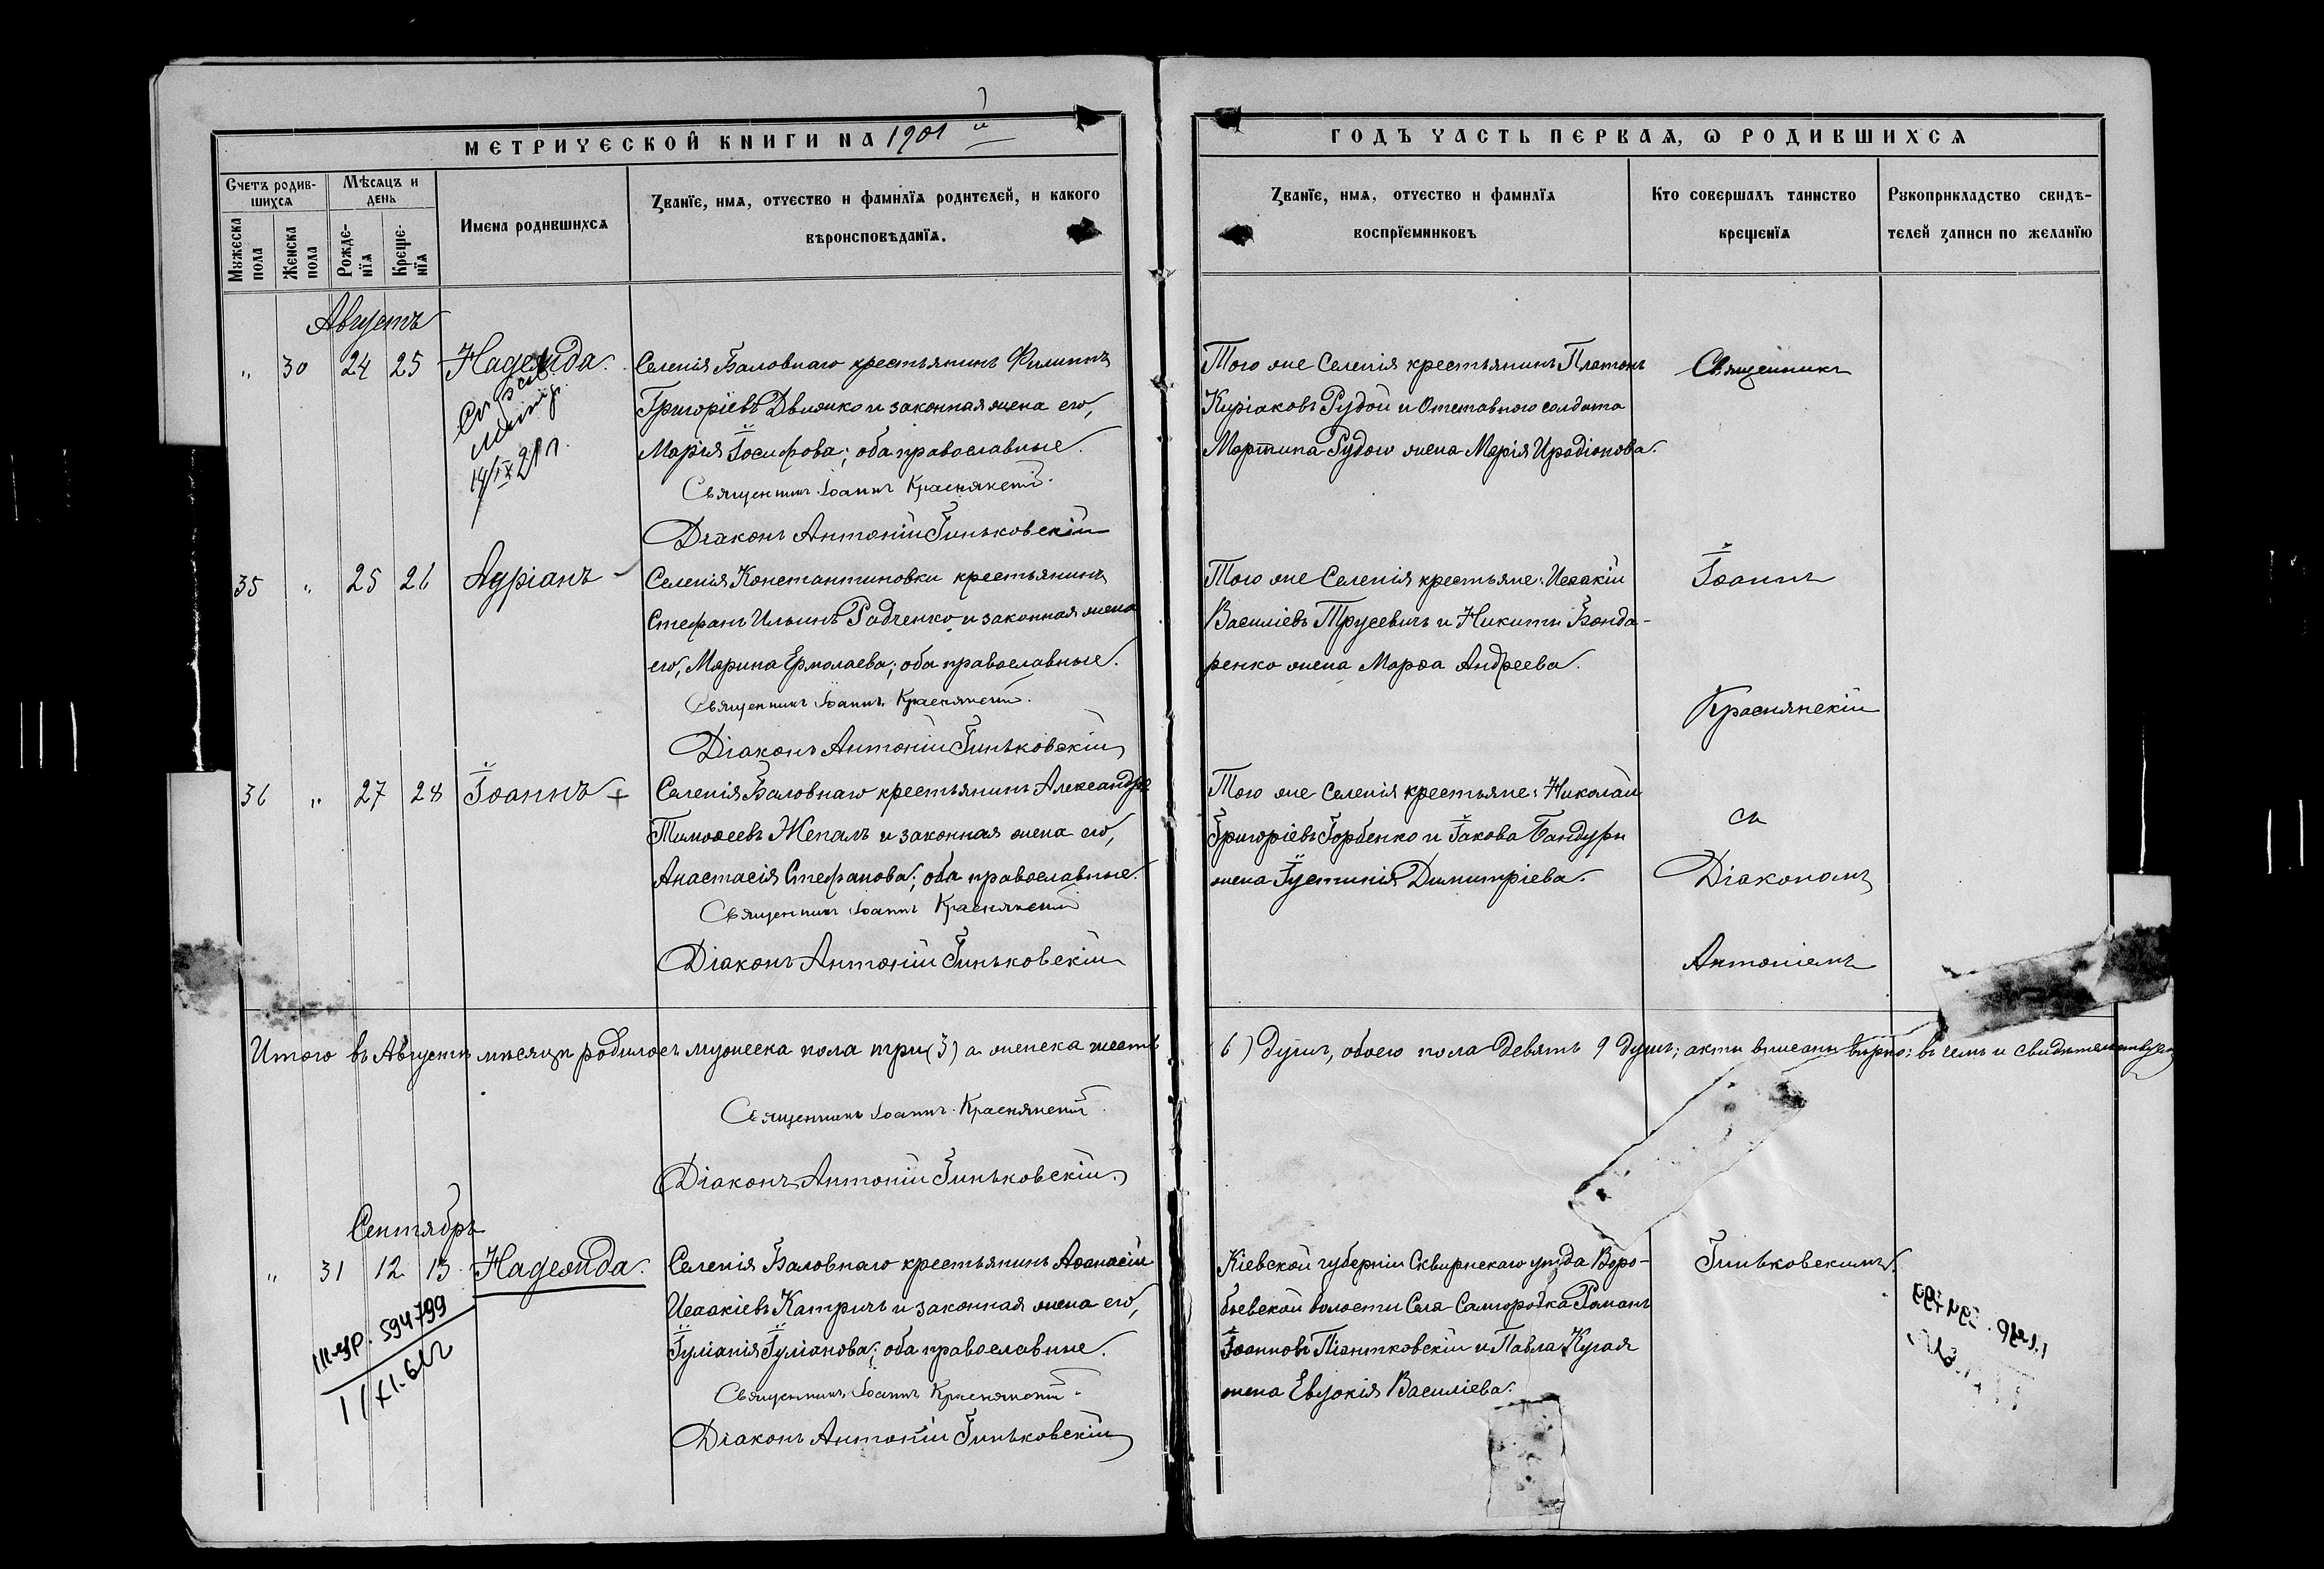 МЕТРИЧЕСКОЙ КНИГИ НА 1901 й
Счетъ родив-
шихся
Мѣсяцъ и
день
Мужеска
пола
Женска
пола
Рожде-
нїя
Креще-
нїя
Имена родившихся
Званїе, имя, отчество и фамилїя родителей, и какого
вѣроисповѣданїя.
Августъ
" 30 24 25 Надежда.
14/IX 21 г.
Селенія Баловнаго крестьянинъ Филиппъ
Григоріевъ Движко и законная жена его,
Марія Іосифова; оба православные.
Священникъ Іоаннъ Краснянскій.
Діаконъ Антоній Гиньковскій
35 " 25 26 Адріанъ
Селенія Константиновки крестьянинъ
Стефанъ Ильинъ Радченко и законная жена
его, Марина Ермолаева; оба православные.
Священникъ Іоаннъ Краснянскій.
Діаконъ Антоній Гиньковскій
36 " 27 28 Іоаннъ +
Селенія Баловнаго крестьянинъ Александръ
Тимоѳеевъ Жепалъ и законная жена его,
Анастасія Стефанова; оба православные.
Священникъ Іоаннъ Краснянскій
Діаконъ Антоній Гиньковскій
Итого въ Августѣ мѣсяцѣ родилось мужеска пола три (3) а женска шесть
Священникъ Іоаннъ Краснянскій.
Діаконъ Антоній Гиньковскій.
Сентябрь
" 31 12 13 Надежда.
594799
1/XI-61г
Селенія Баловнаго крестьянинъ Аѳанасій
Исаакіевъ Катричъ и законная жена его,
Іуліанія Іуліанова; оба православные.
Священникъ Іоаннъ Краснянскій.
Діаконъ Антоній Гиньковскій
ГОДЪ ЧАСТЬ ПЕРВАЯ, Ѡ РОДИВШИХСЯ
Званїе, имя, отчество и фамилїя
воспрїемниковъ
Кто совершалъ таинство
крещенїя
Рукоприкладство свидѣ-
телей записи по желанїю
Того же Селенія крестьянинъ Платонъ
Киріаковъ Рудой и Отставного солдата
Мартина Рудого жена Марія Иродіонова.
Того же Селенія крестьяне: Исаакій
Василіевъ Трусевичъ и Никиты Бонда-
ренко жена Марѳа Андреева.
Того же Селенія крестьяне: Николай
Григоріевъ Горбенко и Іакова Бандуры
жена Іустинія Димитріева.
Священникъ
Іоаннъ
Краснянскій
съ
Діакономъ
Антоніемъ
6) душъ, обоего пола девять 9 душъ; акты вписаны вѣрно: въ семъ и свидѣтельствуемъ
Кіевской губерніи Сквирскаго уѣзда Воро-
бьевской волости Села Самгородка Романъ
Іоанновъ Піантковскій и Павла Кугая
жена Евдокія Василіева.
Гиньковскимъ.